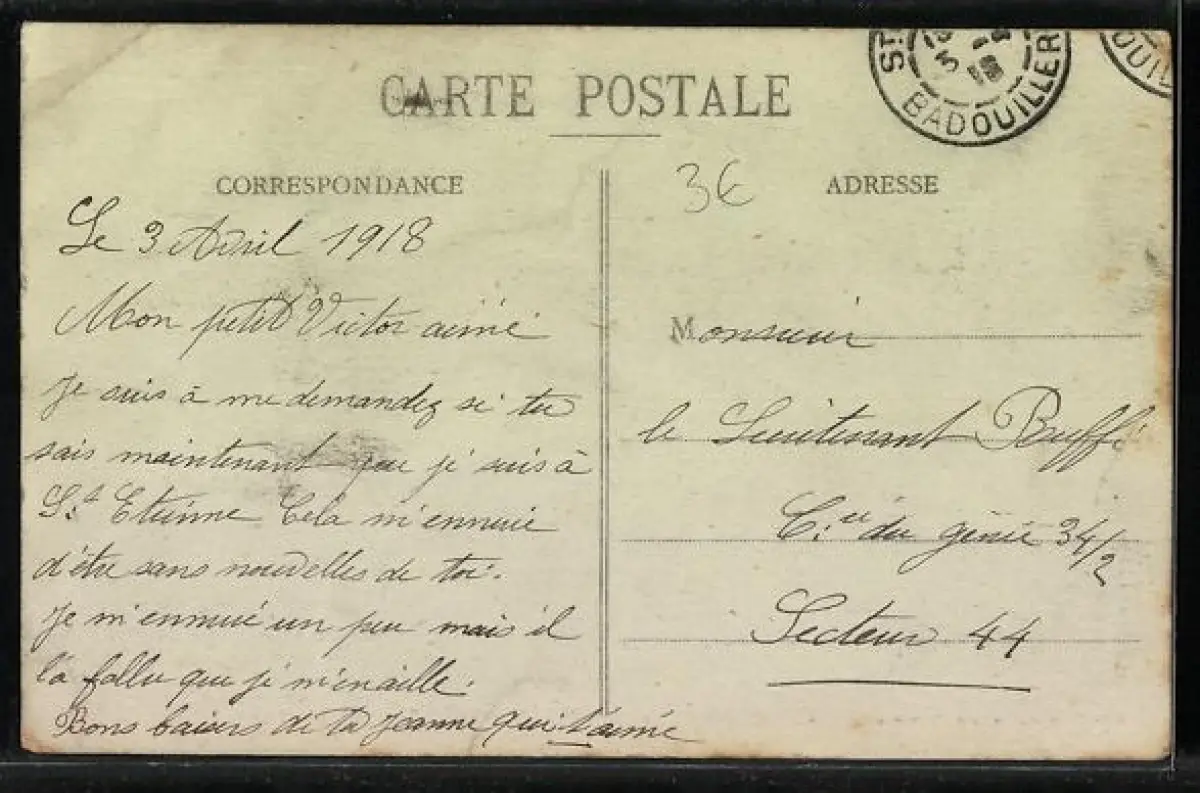 CARTE POSTALE
ST
BADOUILLER
OUIL
CORRESPONDANCE
3€
ADRESSE
Le 3 Avril 1918
Mon petit Victor aimé
Je suis à me demandez si tu
sais maintenant que je suis à
St Etienne Cela m'ennuie
d'être sans nouvelles de toi.
Je m'ennuie un peu mais il
l'a fallu que je m'enaille.
Bons baisers de ta Jeanne qui t'aime
Monsieur
le Lieutenant Buffé
Cie du génie 34/2
Secteur 44